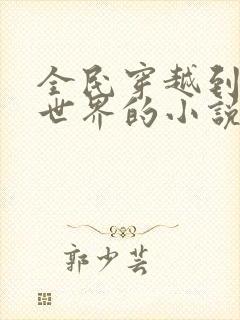 全民穿越到
世界的小說
郭少芸